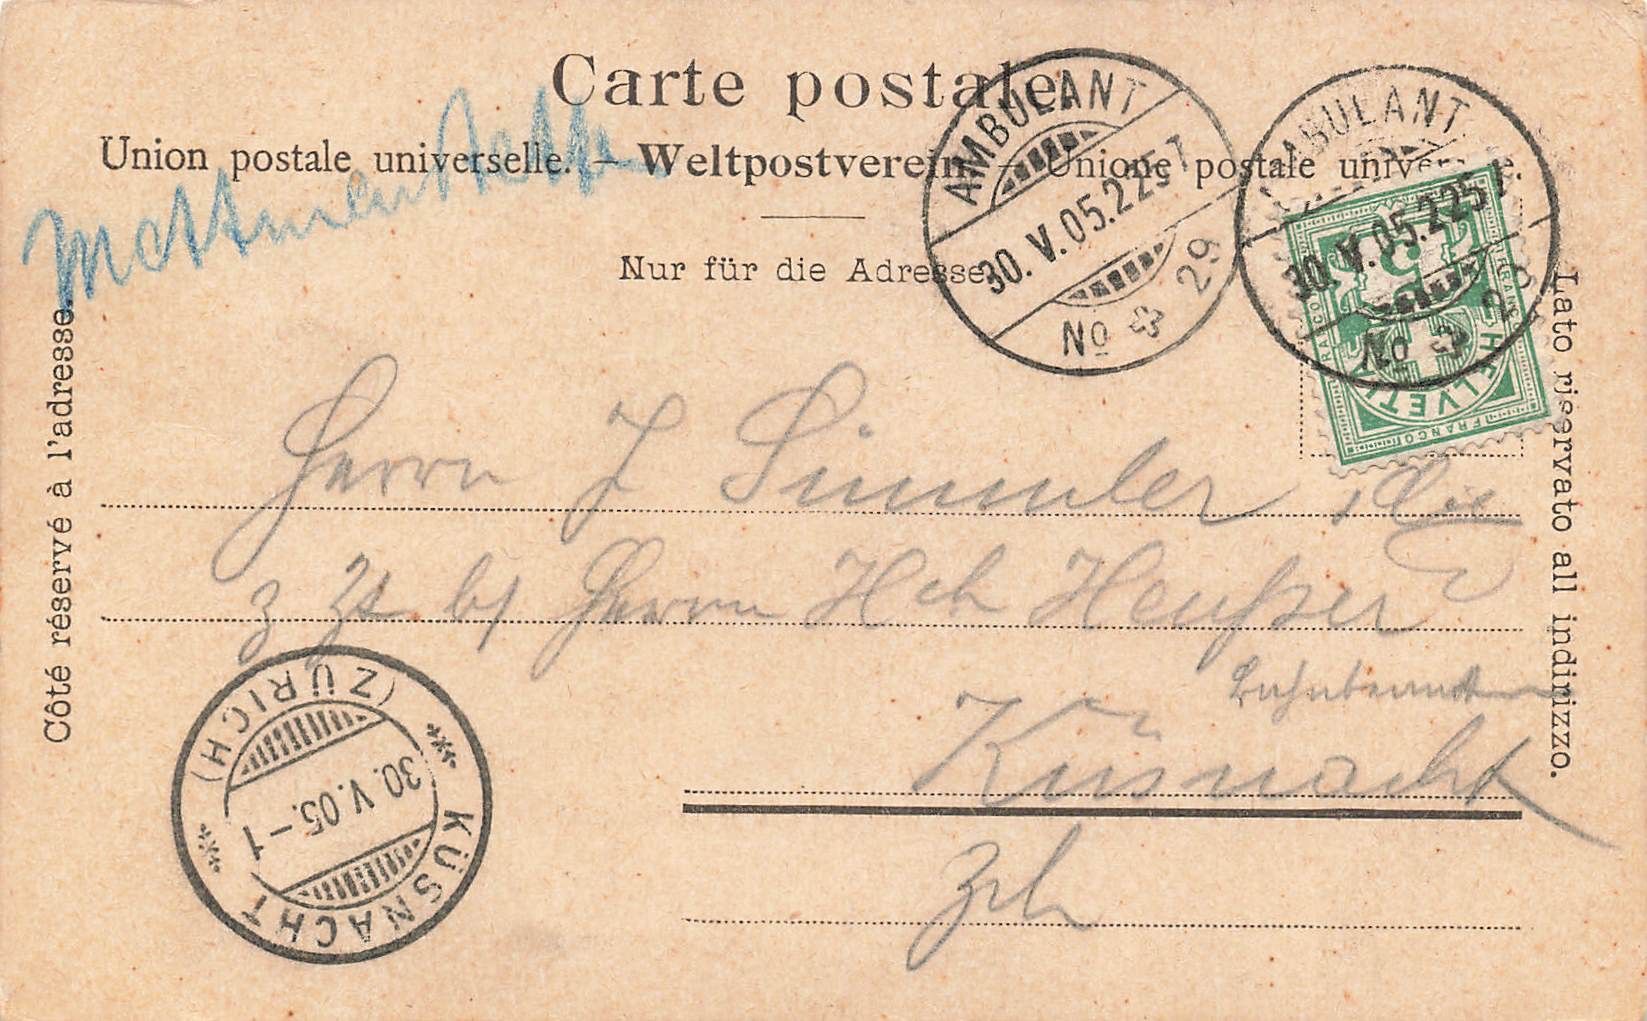 Carte postale.
Union postale universelle. — Weltpostverein — Unione postale universale.
Nur für die Adresse.
Côté réservé à l'adresse.
Lato riservato all indirizzo.
AMBULANT
30. V. 05. 225 7
No 29
AMBULANT
30. V. 05. 225 7
No 29
FRANCO
HELVETIA
5
Herrn J Simmler
z Zt b/ Herrn Hch Heußer
Küsnacht
Zch
KÜSNACHT
(ZÜRICH)
30. V. 05. – 1